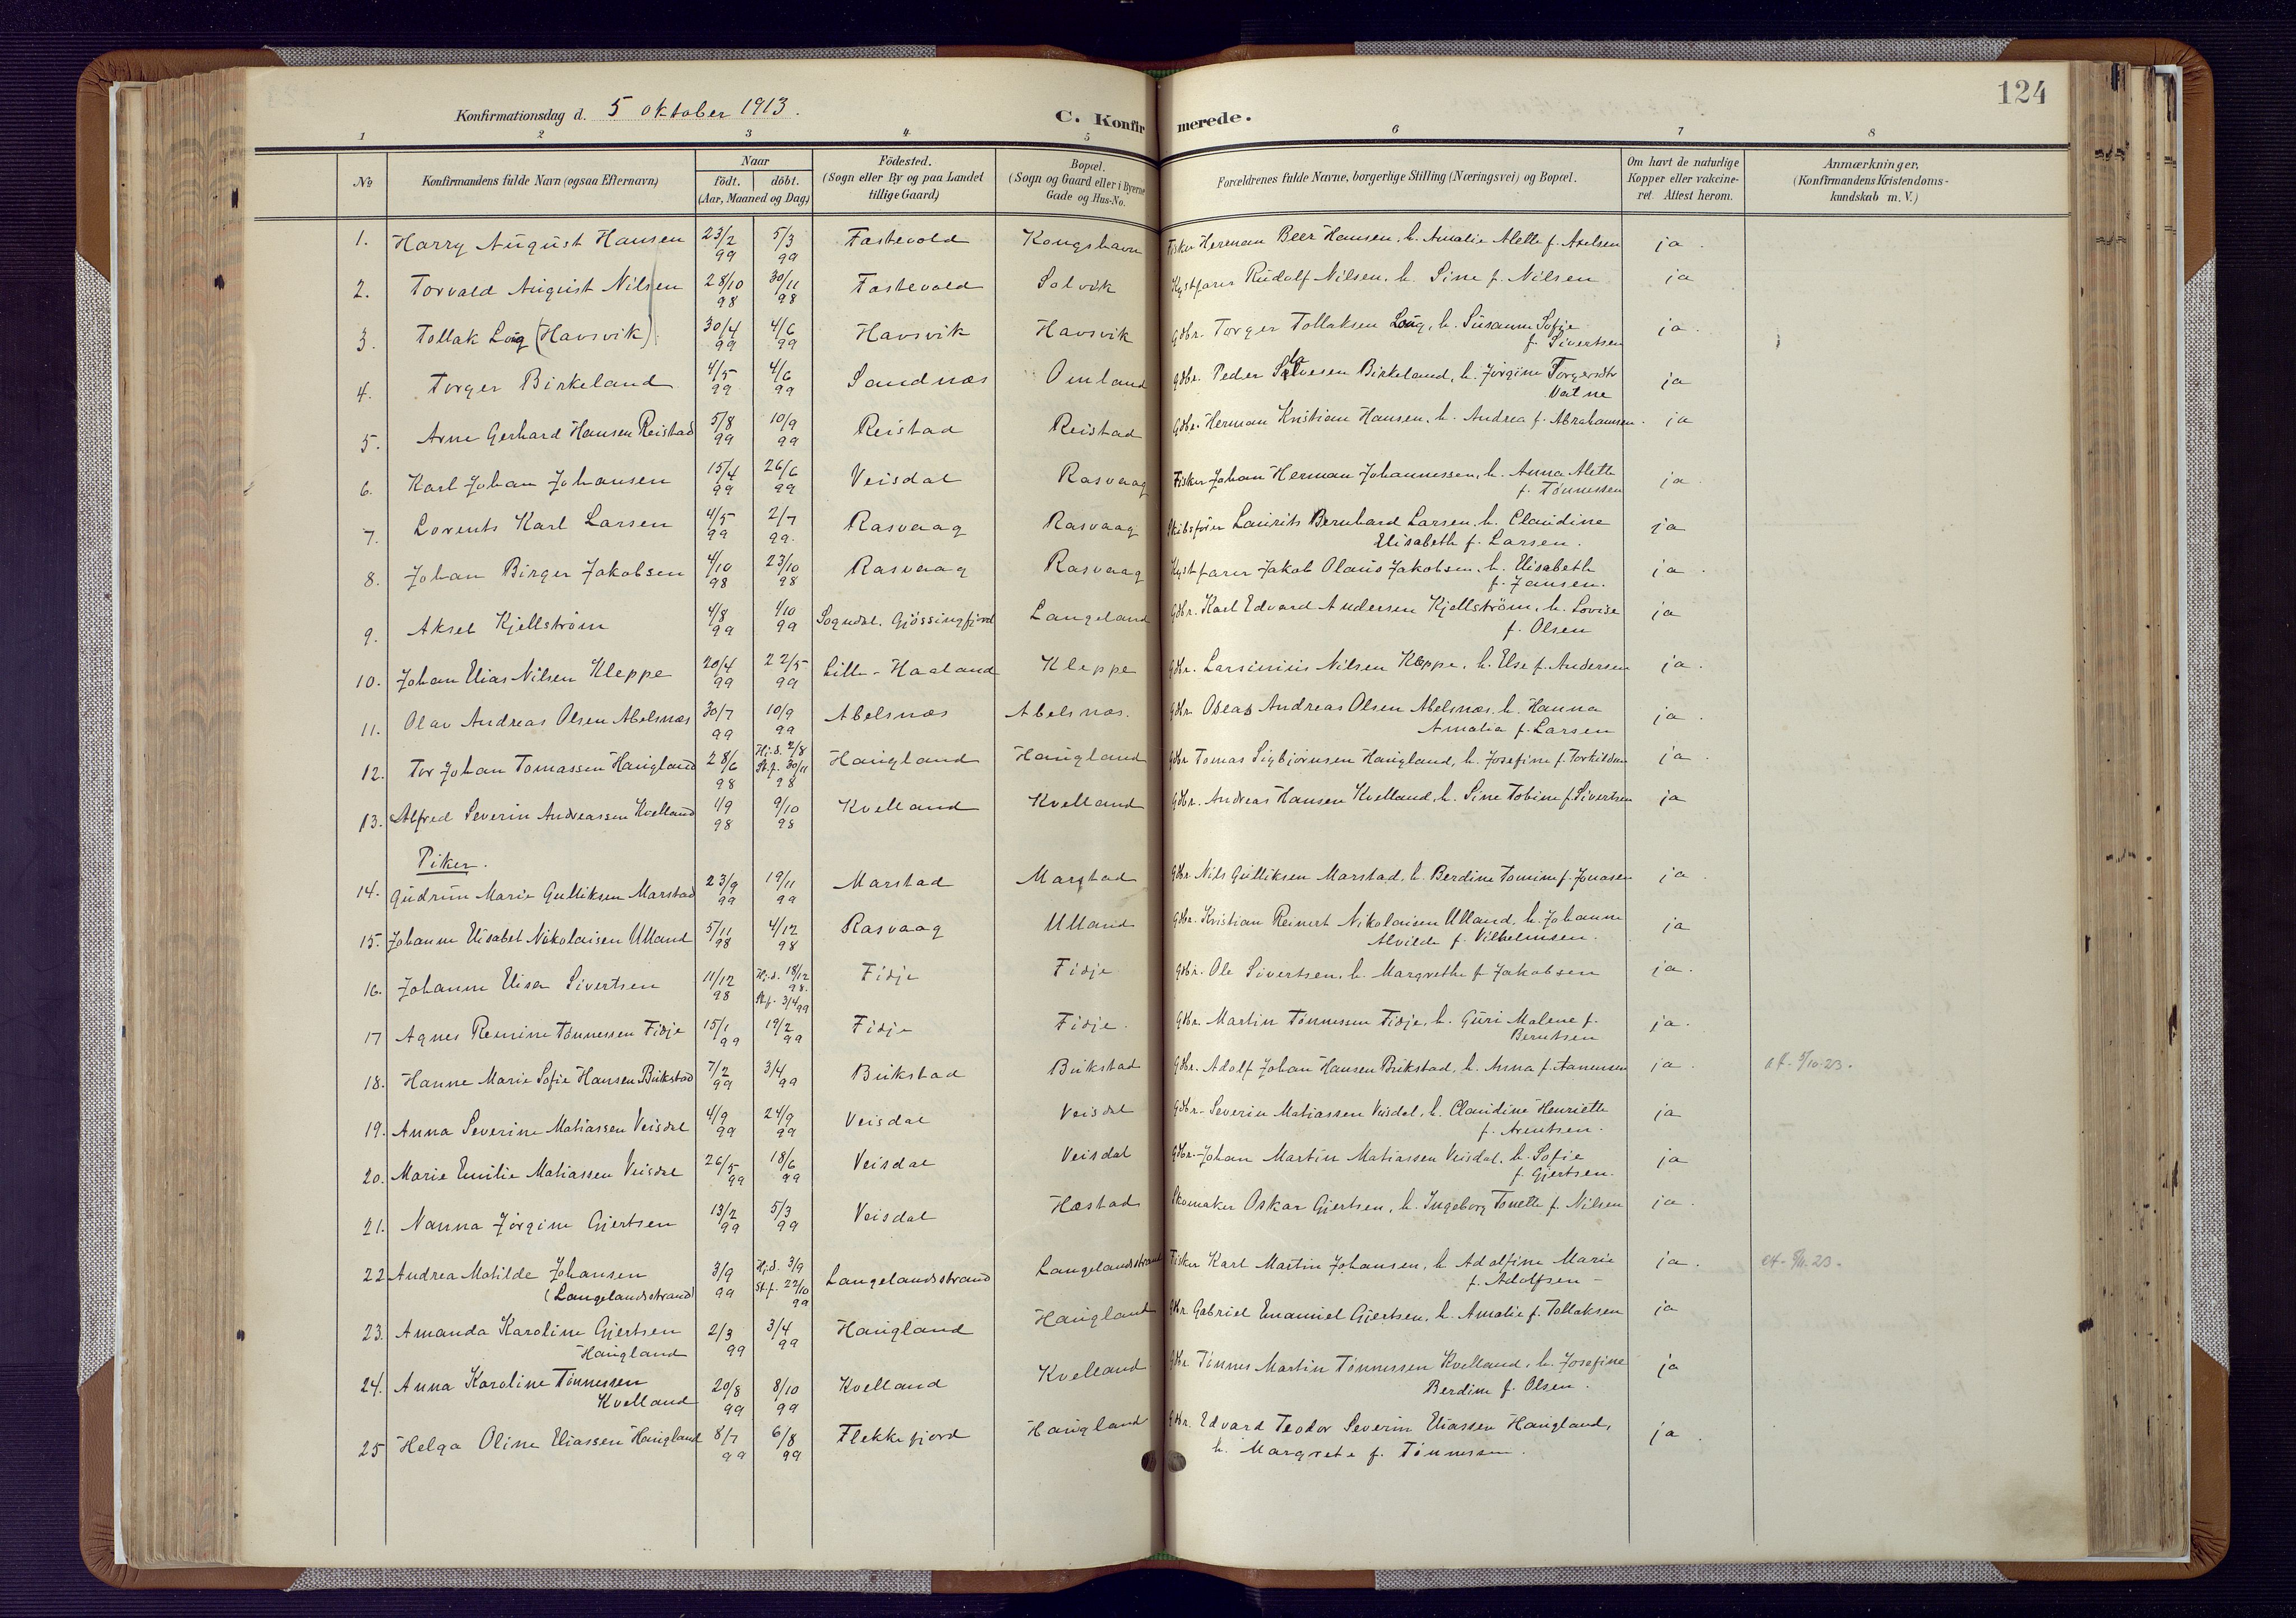 124
Konfirmationsdag d. 5 oktober 1913.
C. Konfirmerede.
1 2 3 4 5 6 7 8
No Konfirmandens fulde Navn (ogsaa Efternavn) Naar födt. döbt. (Aar, Maaned og Dag) Födested. (Sogn eller By og paa Landet tillige Gaard) Bopæl. (Sogn og Gaard eller i Byerne Gade og Hus-No. Forældrenes fulde Navne, borgerlige Stilling (Næringsvei) og Bopæl. Om havt de naturlige Kopper eller vakcineret. Attest herom. Anmærkninger. (Konfirmandens Kristendomskundskab m. V.)
1. Harry August Hansen 23/2 99 5/3 99 Fastevold Kongshavn Fisker Herman Beer Hansen, h. Amalie Alette f. Axelsen ja.
2. Torvald August Nilsen 28/10 98 30/11 98 Fastevold Solvik Kystfarer Rudolf Nilsen, h. Sine f. Nilsen ja
3. Tollak Log (Havsvik) 30/4 99 4/6 99 Havsvik Havsvik Gdbr. Torger Tollaksen Log, h. Susanne Sofie
f. Sivertsen ja.
4. Torger Birkeland 4/5 99 4/6 99 Sandnæs Omland Gdbr. Peder Salvesen Birkeland, h. Jørgine Torgersdtr
Vatne ja
5. Arne Gerhard Hansen Reistad 5/8 99 10/9 99 Reistad Reistad Gdbr. Herman Kristian Hansen, h. Andrea f. Abrahamsen. ja
6. Karl Johan Johansen 15/4 99 26/6 99 Veisdal Rasvaag Fisker Johan Herman Johannessen, h. Anna Alette
f. Tønnessen ja.
7. Lorents Karl Larsen 4/5 99 2/7 99. Rasvaag Rasvaag Skibsfører Laurits Bernhard Larsen, h. Claudine
Elisabeth f. Larsen. ja
8. Johan Birger Jakobsen 4/10 98 23/10 98 Rasvaag Rasvaag Kystfarer Jakob Olaus Jakobsen, h. Elisabeth
f. Jansen. ja.
9. Aksel Kjellström 4/8 99 1/10 99 Sogndal. Gjøssingfjord Langeland Gdbr. Karl Edvard Andersen Kjellström, h. Lovise
f. Olsen ja
10. Johan Elias Nilsen Kleppe 20/4 99 22/5 99 Lille-Haaland Kleppe Gdbr. Larsinius Nilsen Kleppe, h. Else f. Andersen ja.
11. Olav Andreas Olsen Abelsnæs 30/7 99 10/9 99 Abelsnæs Abelsnæs. Gdbr. Oleas Andreas Olsen Abelsnæs, h. Hanna
Amalia f. Larsen ja.
12. Tor Johan Tomassen Haugland 28/6 98 Hj.d. 2/8 St.f. 30/11 98 Haugland Haugland Gdbr Tomas Sigbjørnsen Haugland, h. Josefine f. Torkildsen ja.
13. Alfred Severin Andreassen Kvelland 1/9 98 9/10 98 Kvelland Kvelland Gdbr. Andreas Hansen Kvelland, h. Sine Tobine f. Sivertsen ja
Piker.
14. Gudrun Marie Gulliksen Marstad 23/9 99 19/11 99 Marstad Marstad Gdbr Nils Gulliksen Marstad, h. Berdine Tomine f. Jonasen ja.
15. Johanne Elisabet Nikolaisen Ulland 5/11 98 4/12 98 Rasvaag Ulland Gdbr. Kristian Reinert Nikolaisen Ulland, h. Johanne
Alvilde f. Vilhelmsen. ja
16. Johanne Elisa Sivertsen 11/12 98 Hj.d. 18/12 98. St.f. 3/4 99 Fidje Fidje Gdbr. Ole Sivertsen, h. Margrethe f Jakobsen ja.
17 Agnes Remine Tønnessen Fidje 15/1 99 19/2 99 Fidje Fidje. Gdbr. Martin Tønnessen Fidje, h. Guri Malene f.
Berntsen ja.
18. Hanne Marie Sofie Hansen Bukstad 7/2 99 3/4 99 Bukstad Bukstad Gdbr. Adolf Johan Hansen Bukstad, h. Anna f. Aanensen ja.
19. Anna Severine Matiassen Veisdal 4/9 99 24/9 99 Veisdal Veisdal Gdbr. Severin Matiassen Veisdal, h. Claudine Henriette
f. Arentsen. ja
20. Marie Emilie Matiassen Veisdal 26/5 99 18/6 99 Veisdal Veisdal Gdbr. Johan Martin Matiassen Veisdal, h. Sofie
f. Gjertsen. ja
21. Nanna Jørgine Gjertsen 13/2 99 5/3 99 Veisdal Hæstad Skomaker Oskar Gjertsen, h. Ingeborg Tonette f. Nilsen ja.
22 Andrea Matilde Johansen
(Langelandsstrand) 3/9 99 Hj.d. 3/9 St.f. 22/10 99 Langelandsstrand Langelandsstrand Fisker Karl Martin Johansen, h. Adolfine Marie
f. Adolfsen - ja.
23. Amanda Karoline Gjertsen
Haugland 2/3 99 3/4 99 Haugland Haugland Gdbr Gabriel Emanuel Gjertsen, h. Amalie f. Tollaksen ja
24. Anna Karoline Tønnessen
Kvelland 20/8 99 8/10 99 Kvelland Kvelland Gdbr. Tønnes Martin Tønnessen Kvelland, h. Josefine
Berdine f. Olsen. ja
25 Helga Oline Eliassen Haugland 8/7 99 6/8 99 Flekkefjord Haugland Gdbr. Edvard Teodor Severin Eliassen Haugland,
h. Margrete f. Tønnessen. ja.